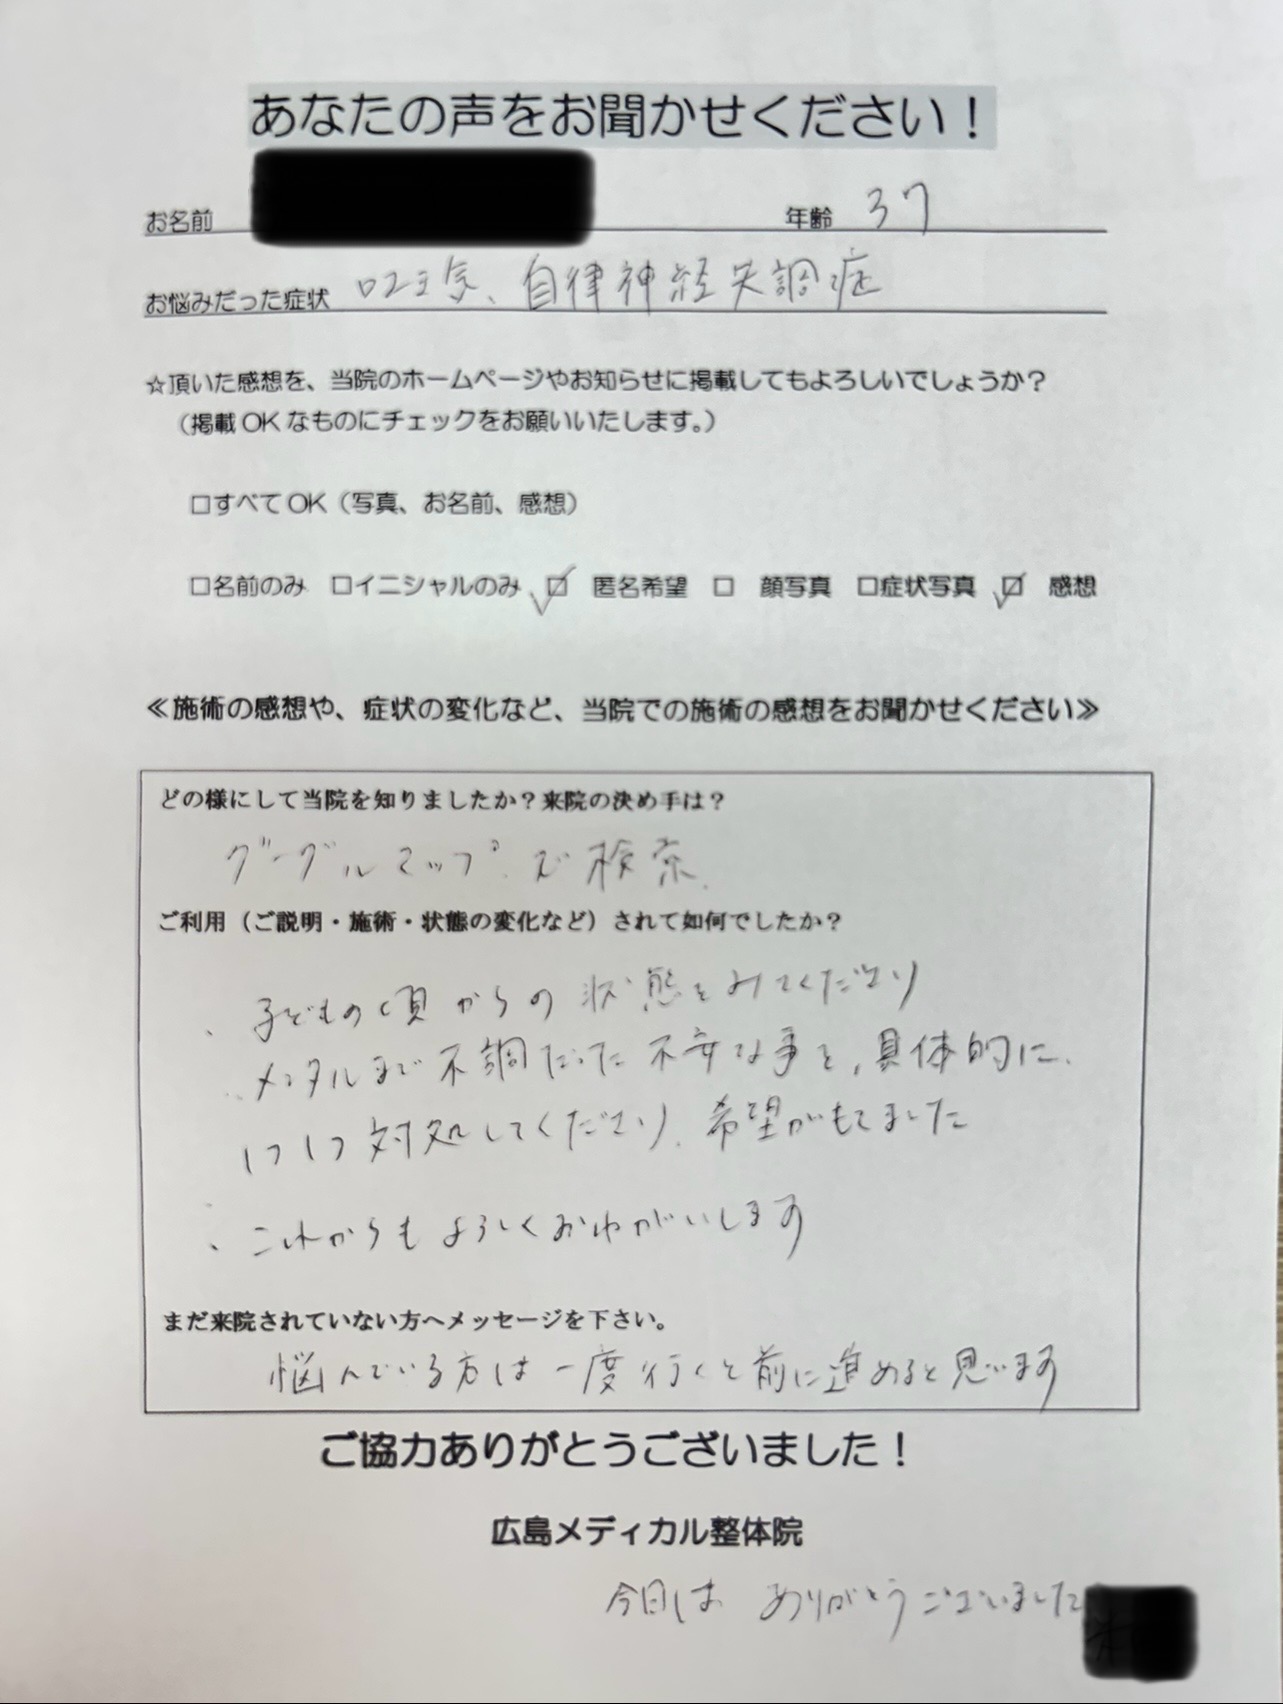 あなたの声をお聞かせください！
お名前 年齢 37
お悩みだった症状 吐き気、自律神経失調症
☆頂いた感想を、当院のホームページやお知らせに掲載してもよろしいでしょうか？
（掲載OKなものにチェックをお願いいたします。）
□すべてOK（写真、お名前、感想）
□名前のみ □イニシャルのみ ☑ 匿名希望 □ 顔写真 □症状写真 ☑ 感想
≪施術の感想や、症状の変化など、当院での施術の感想をお聞かせください≫
どの様にして当院を知りましたか？来院の決め手は？
グーグルマップで検索
ご利用（ご説明・施術・状態の変化など）されて如何でしたか？
・子どもの頃からの状態をみてくださり
メンタルまで不調だった不安な事を、具体的に
1つ1つ対処してくださり、希望がもてました
・これからもよろしくおねがいします
まだ来院されていない方へメッセージを下さい。
悩んでいる方は一度行くと前に進めると思います
ご協力ありがとうございました！
広島メディカル整体院
今日は ありがとうございました